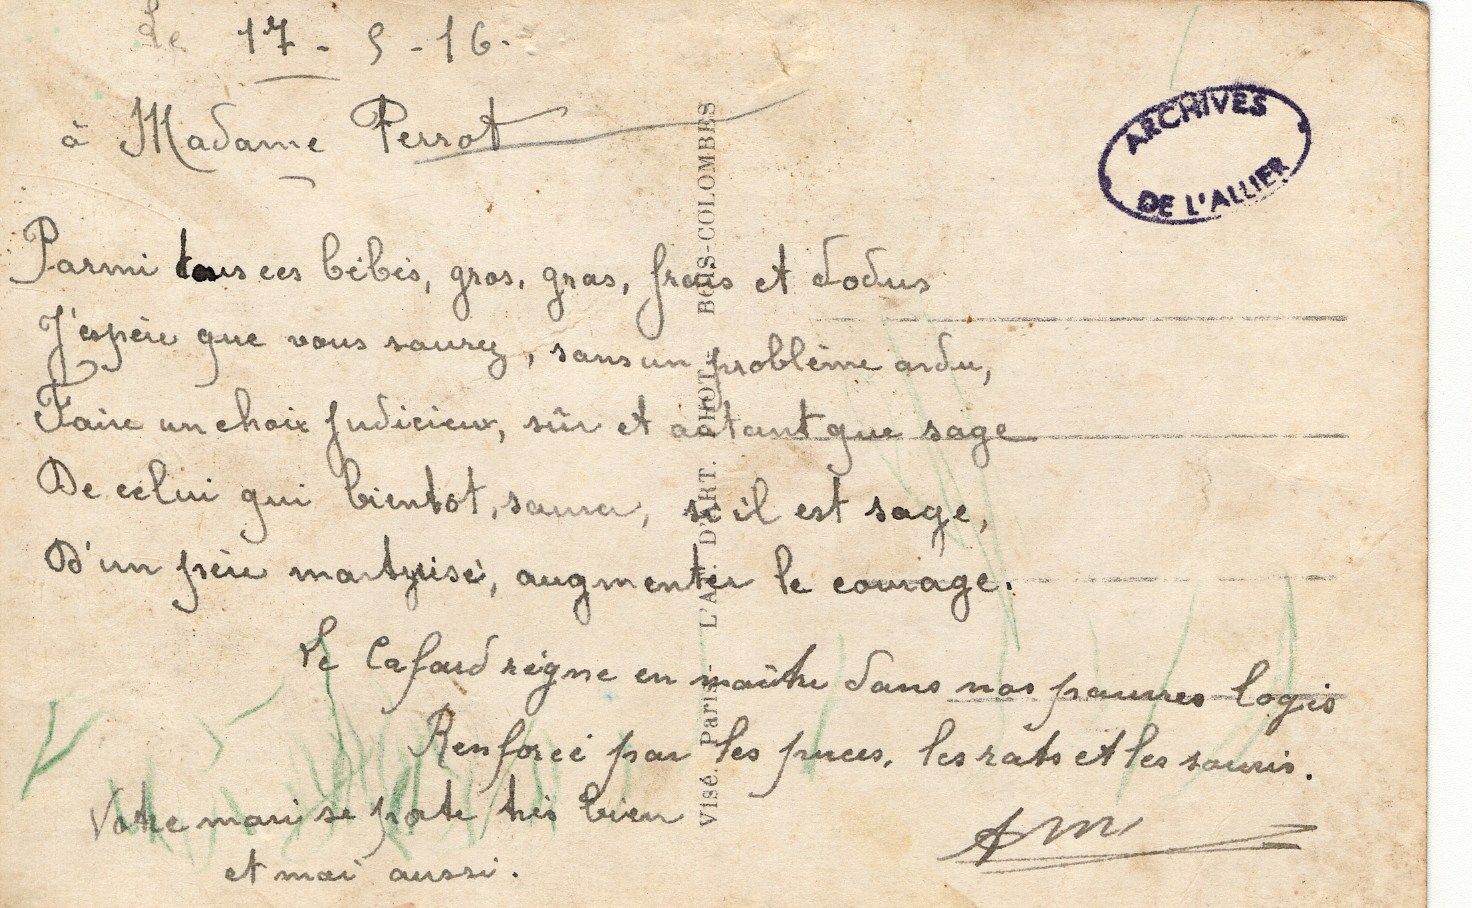 Le 17 - 5 - 16.
à Madame Perrot
ARCHIVES
DE L'ALLIER
Parmi tous ces bébés, gros, gras, frais et dodus
J'espère que vous saurez, sans un problème ardu,
Faire un choix judicieux, sûr et autant que sage
De celui qui bientôt, saura, si il est sage,
D'un père martyrisé, augmenter le courage.
Le Cafard règne en maître dans nos pauvres logis
Renforcé par les puces, les rats et les souris.
Votre mari se porte très bien
et moi aussi.
Visé. Paris. L'AT. D'ART. PHOT. BOIS-COLOMBES